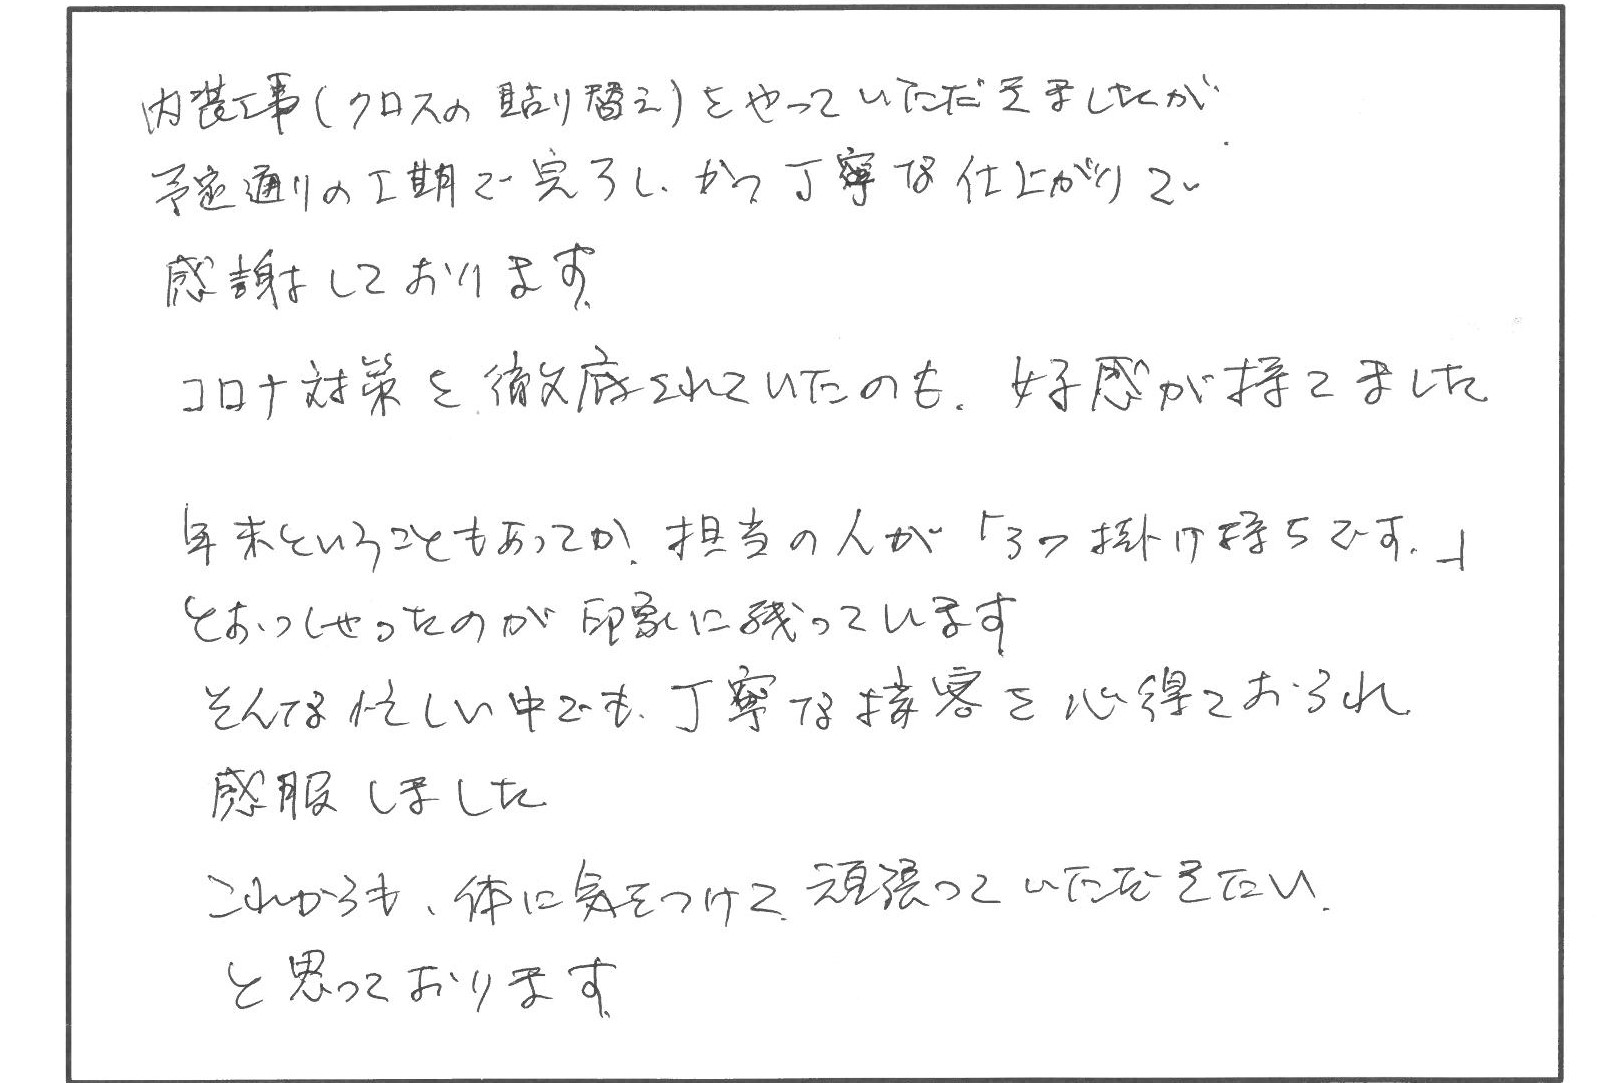 内装工事(クロスの貼り替え)をやっていただきましたが、
予定通りの工期で完了し、かつ丁寧な仕上がりで
感謝しております。
コロナ対策を徹底されていたのも、好感が持てました
年末ということもあってか、担当の人が「3つ掛け持ちです。」
とおっしゃったのが印象に残っています
そんな忙しい中でも、丁寧な接客を心得ておられ
感服しました
これからも、体に気をつけて、頑張っていただきたい、
と思っております